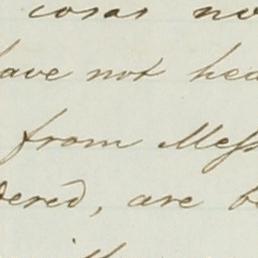 cosas no
have not hea
from Mess
dered, are b